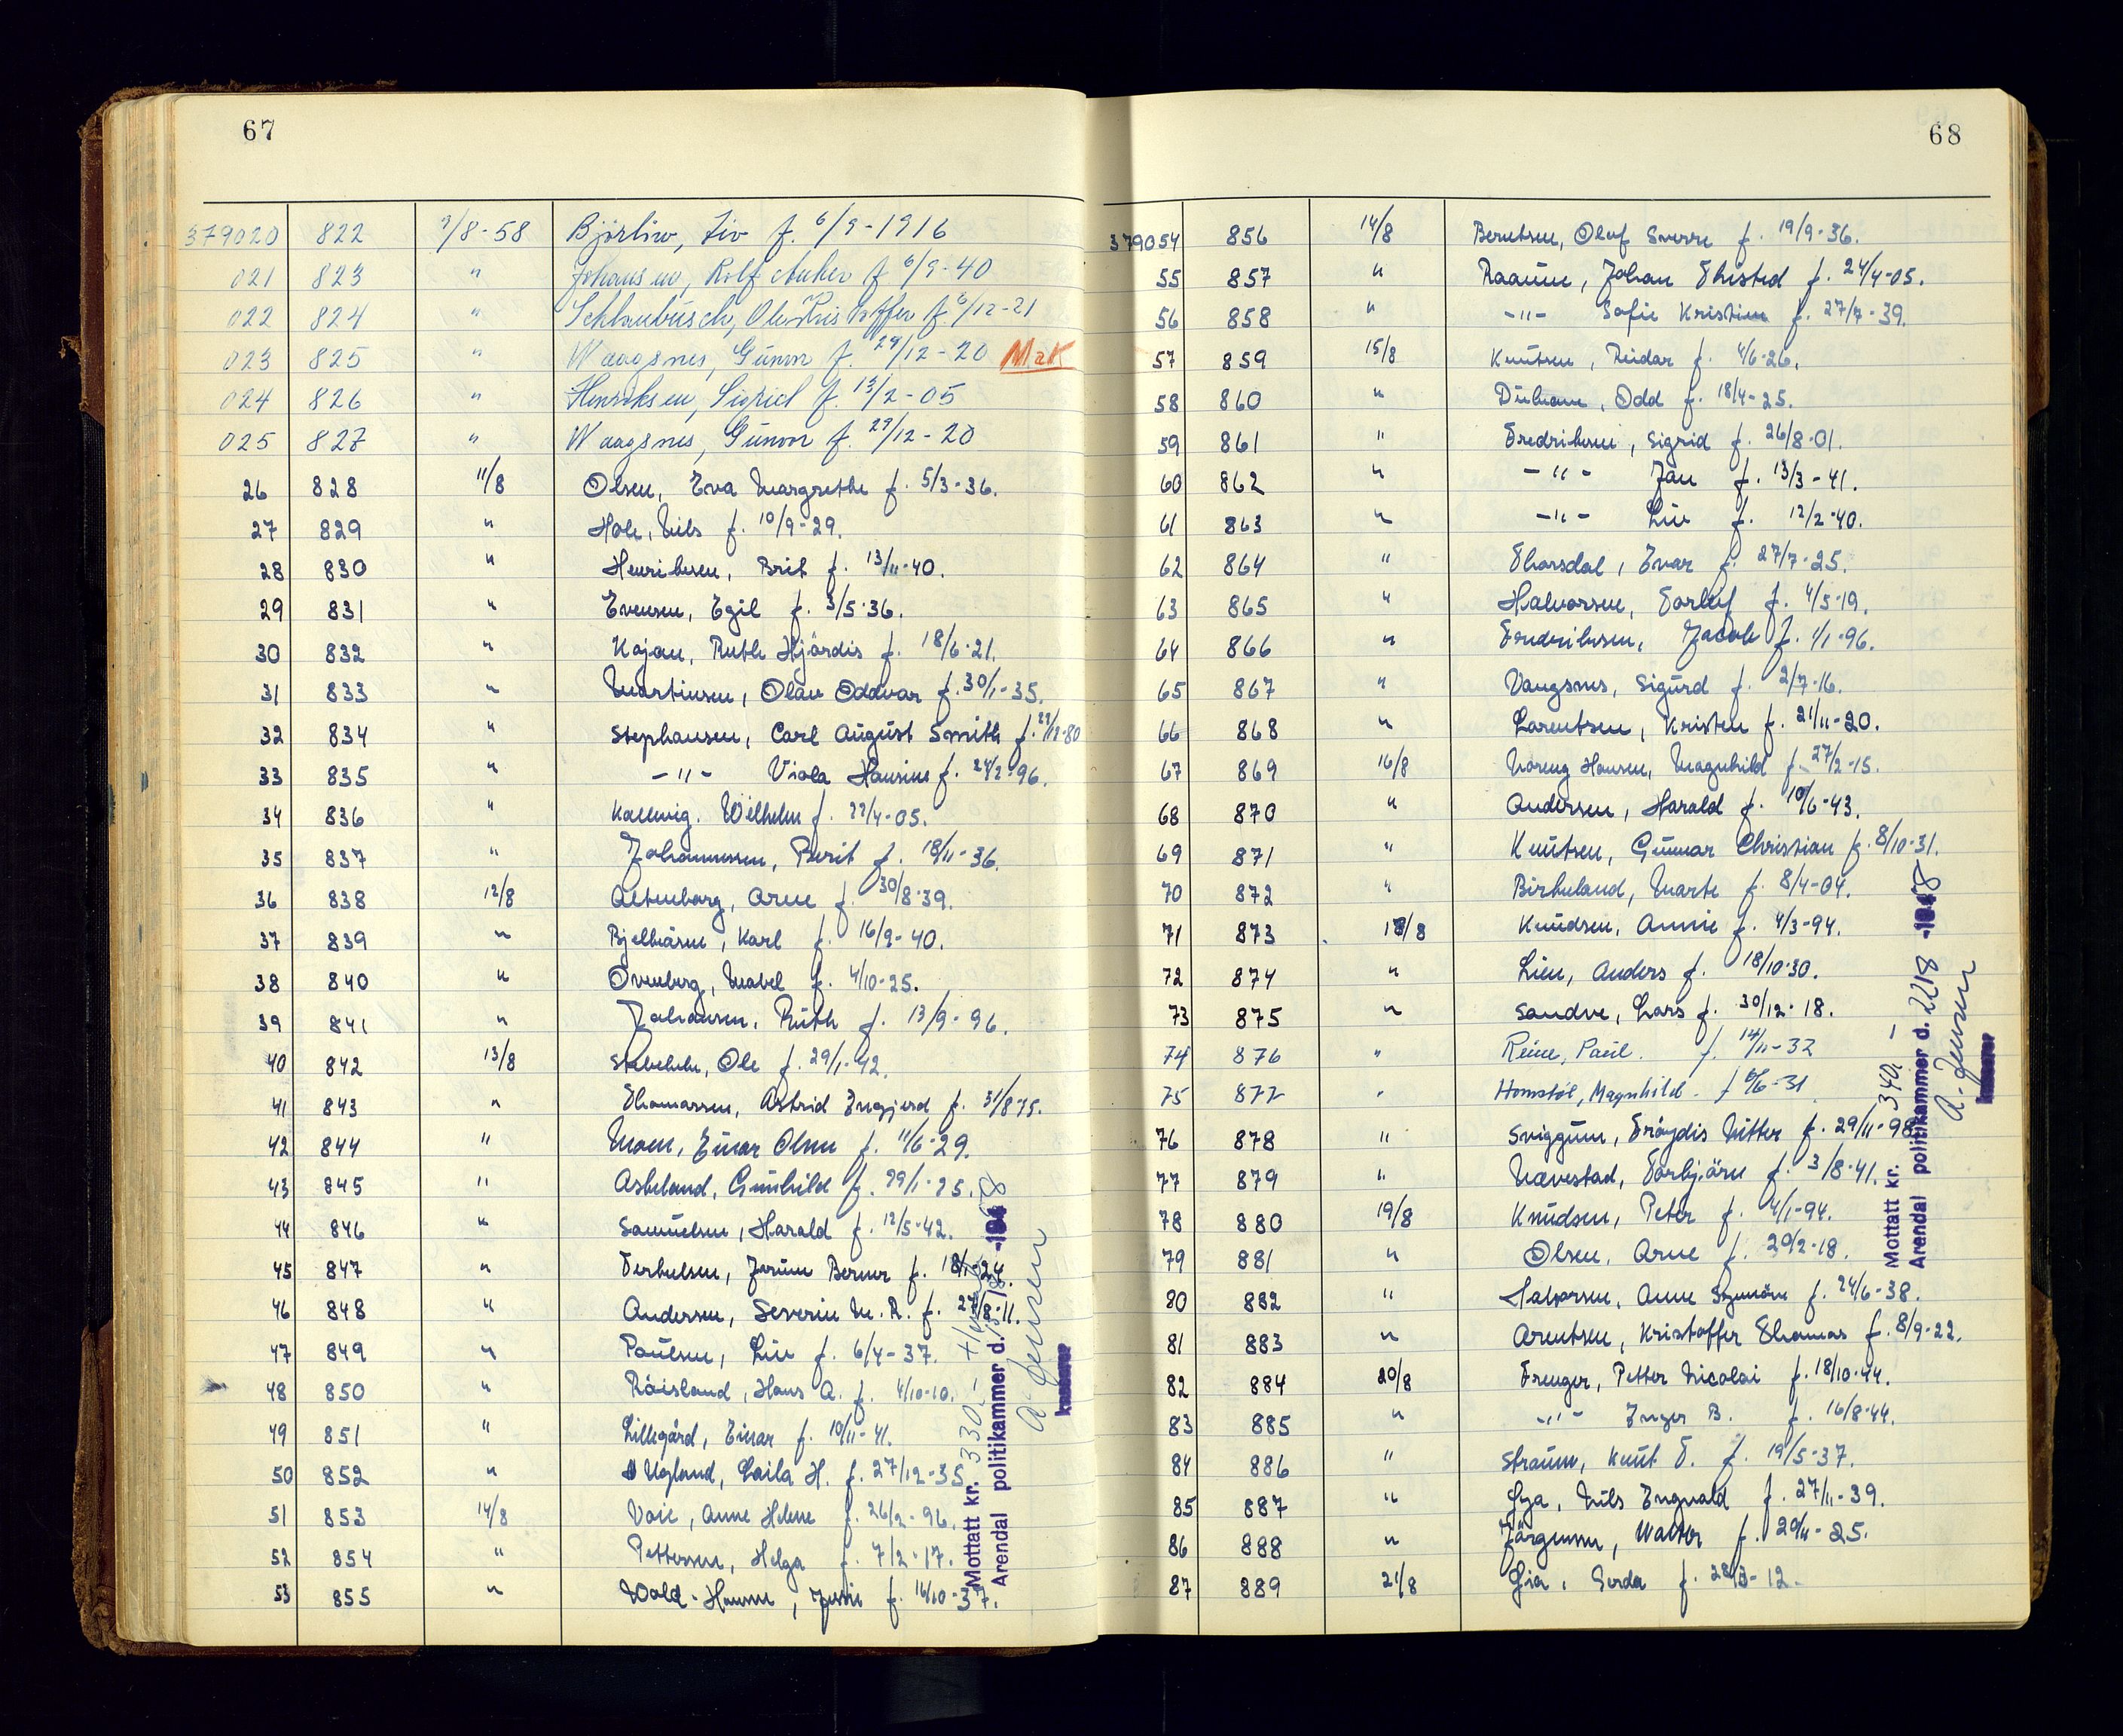 67
379020 822 9/8-58 Björliw, Liv f. 6/9-1916
021 823 " Johansen, Rolf Anker f 6/9-40
022 824 " Schlanbusch, Ole Kristoffer f. 6/12-21
023 825 " Waagsnes, Gunvor f. 29/12-20 Mak
024 826 " Henriksen, Sigrid f. 13/2-05
025 827 " Waagsnes, Gunvor f. 29/12-20
26 828 11/8 Olsen, Eva Margrethe f. 5/3-36.
27 829 " Hole, Nils f. 10/9-29.
28 830 " Henriksen, Brit f. 13/11-40.
29 831 " Evensen, Egil f. 3/5-36.
30 832 " Kajan, Ruth Hjördis f. 18/6-21.
31 833 " Martinsen, Olav Oddvar f. 30/1-35.
32 834 " Stephansen, Carl August Smith f. 22/12-80
33 835 " -"- Viola Hansine f. 24/2-96.
34 836 " Kallevig. Wilhelm f. 22/4-05.
35 837 " Johannessen, Berit f. 18/11-36.
36 838 12/8 Altenborg, Arne f. 30/8-39.
37 839 " Bjelkåsen, Karl f. 16/9-40.
38 840 " Ovenberg, Mabel f. 4/10-25.
39 841 " Johansen, Ruth f. 13/9-96.
40 842 13/8 Ole f. 29/1-42.
41 843 " Thomassen, Astrid Ingjerd f. 31/8-75.
42 844 " Moen, Einar Olav f. 11/6-29.
43 845 " Askeland, Gunhild f. 29/1-25.
44 846 " Samuelsen, Harald f. 12/5-42.
45 847 " Terkelsen, Jorunn Berner f. 18/1-24.
46 848 " Andersen, Severin M. R. f. 27/8-11.
47 849 " Paulsen, Liv f. 6/4-37.
48 850 " Röisland, Hans A. f. 4/10-10.
49 851 " Lillegård, Einar f. 10/11-41.
50 852 " Ugland, Laila H. f. 27/12-35
51 853 14/8 Voie, Anne Helene f. 26/2-96.
52 854 " Pettersen, Helga f. 7/2-17.
53 855 " Wold-Hansen, Jessie f. 16/10-37.
Mottatt kr. 330,-
Arendal politikammer d. 15/8 -1958
A. Jensen
kasserer
68
379054 856 14/8 Berntsen, Oluf Sverre f. 19/9-36.
55 857 " Raaum, Johan Thisted f. 24/4-05.
56 858 " -"- Sofie Kristine f. 27/7-39.
57 859 15/8 Knutsen, Reidar f. 4/6-26.
58 860 " Odd f. 18/4-25.
59 861 " Fredriksen, Sigrid f. 26/8-01.
60 862 " -"- Jan f. 13/3-41.
61 863 " -"- Liv f. 12/2-40.
62 864 " Thorsdal, Ivar f. 27/7-25.
63 865 " Halvorsen, Torleif f. 4/5-19.
64 866 " Fredriksen, Jacob f. 1/1-96.
65 867 " Vangsnes, Sigurd f. 2/7-16.
66 868 " Lorentsen, Kristen f. 21/11-20.
67 869 16/8 Noreng Hansen, Magnhild f. 27/2-15.
68 870 " Andersen, Harald f. 10/6-43.
69 871 " Knutsen, Gunnar Christian f. 8/10-31.
70 872 " Birkeland, Marte f. 8/4-04.
71 873 18/8 Knudsen, Annie f. 4/3-94.
72 874 " Lien, Anders f. 18/10-30.
73 875 " Sandve, Lars f. 30/12-18.
74 876 " Reine, Paul. f. 14/11-32
75 877 " Homstöl, Magnhild. f 6/6-31
76 878 " Sviggum, Fröydis Vitter f. 29/11-98
77 879 " Nævestad, Torbjörn f. 3/8-41.
78 880 19/8 Knudsen, Peter f. 4/1-94.
79 881 " Olsen, Arne f. 20/2-18.
80 882 " Halvorsen, Anne Synnöve f. 24/6-38.
81 883 " Arentsen, Kristoffer Thomas f. 8/9-22.
82 884 20/8 Frenger, Petter Nicolai f. 18/10-44.
83 885 " -"- Inger B. f. 16/8-44.
84 886 " Straum, Knut T. f. 19/5-37.
85 887 " Lya, Nils Ingvald f. 27/11-39.
86 888 " Jörgensen, Walter f. 20/11-25.
87 889 21/8 Lia, Gerda f. 28/3-12.
Mottatt kr. 340,-
Arendal politikammer d. 22/8 -1958
A. Jensen
kasserer